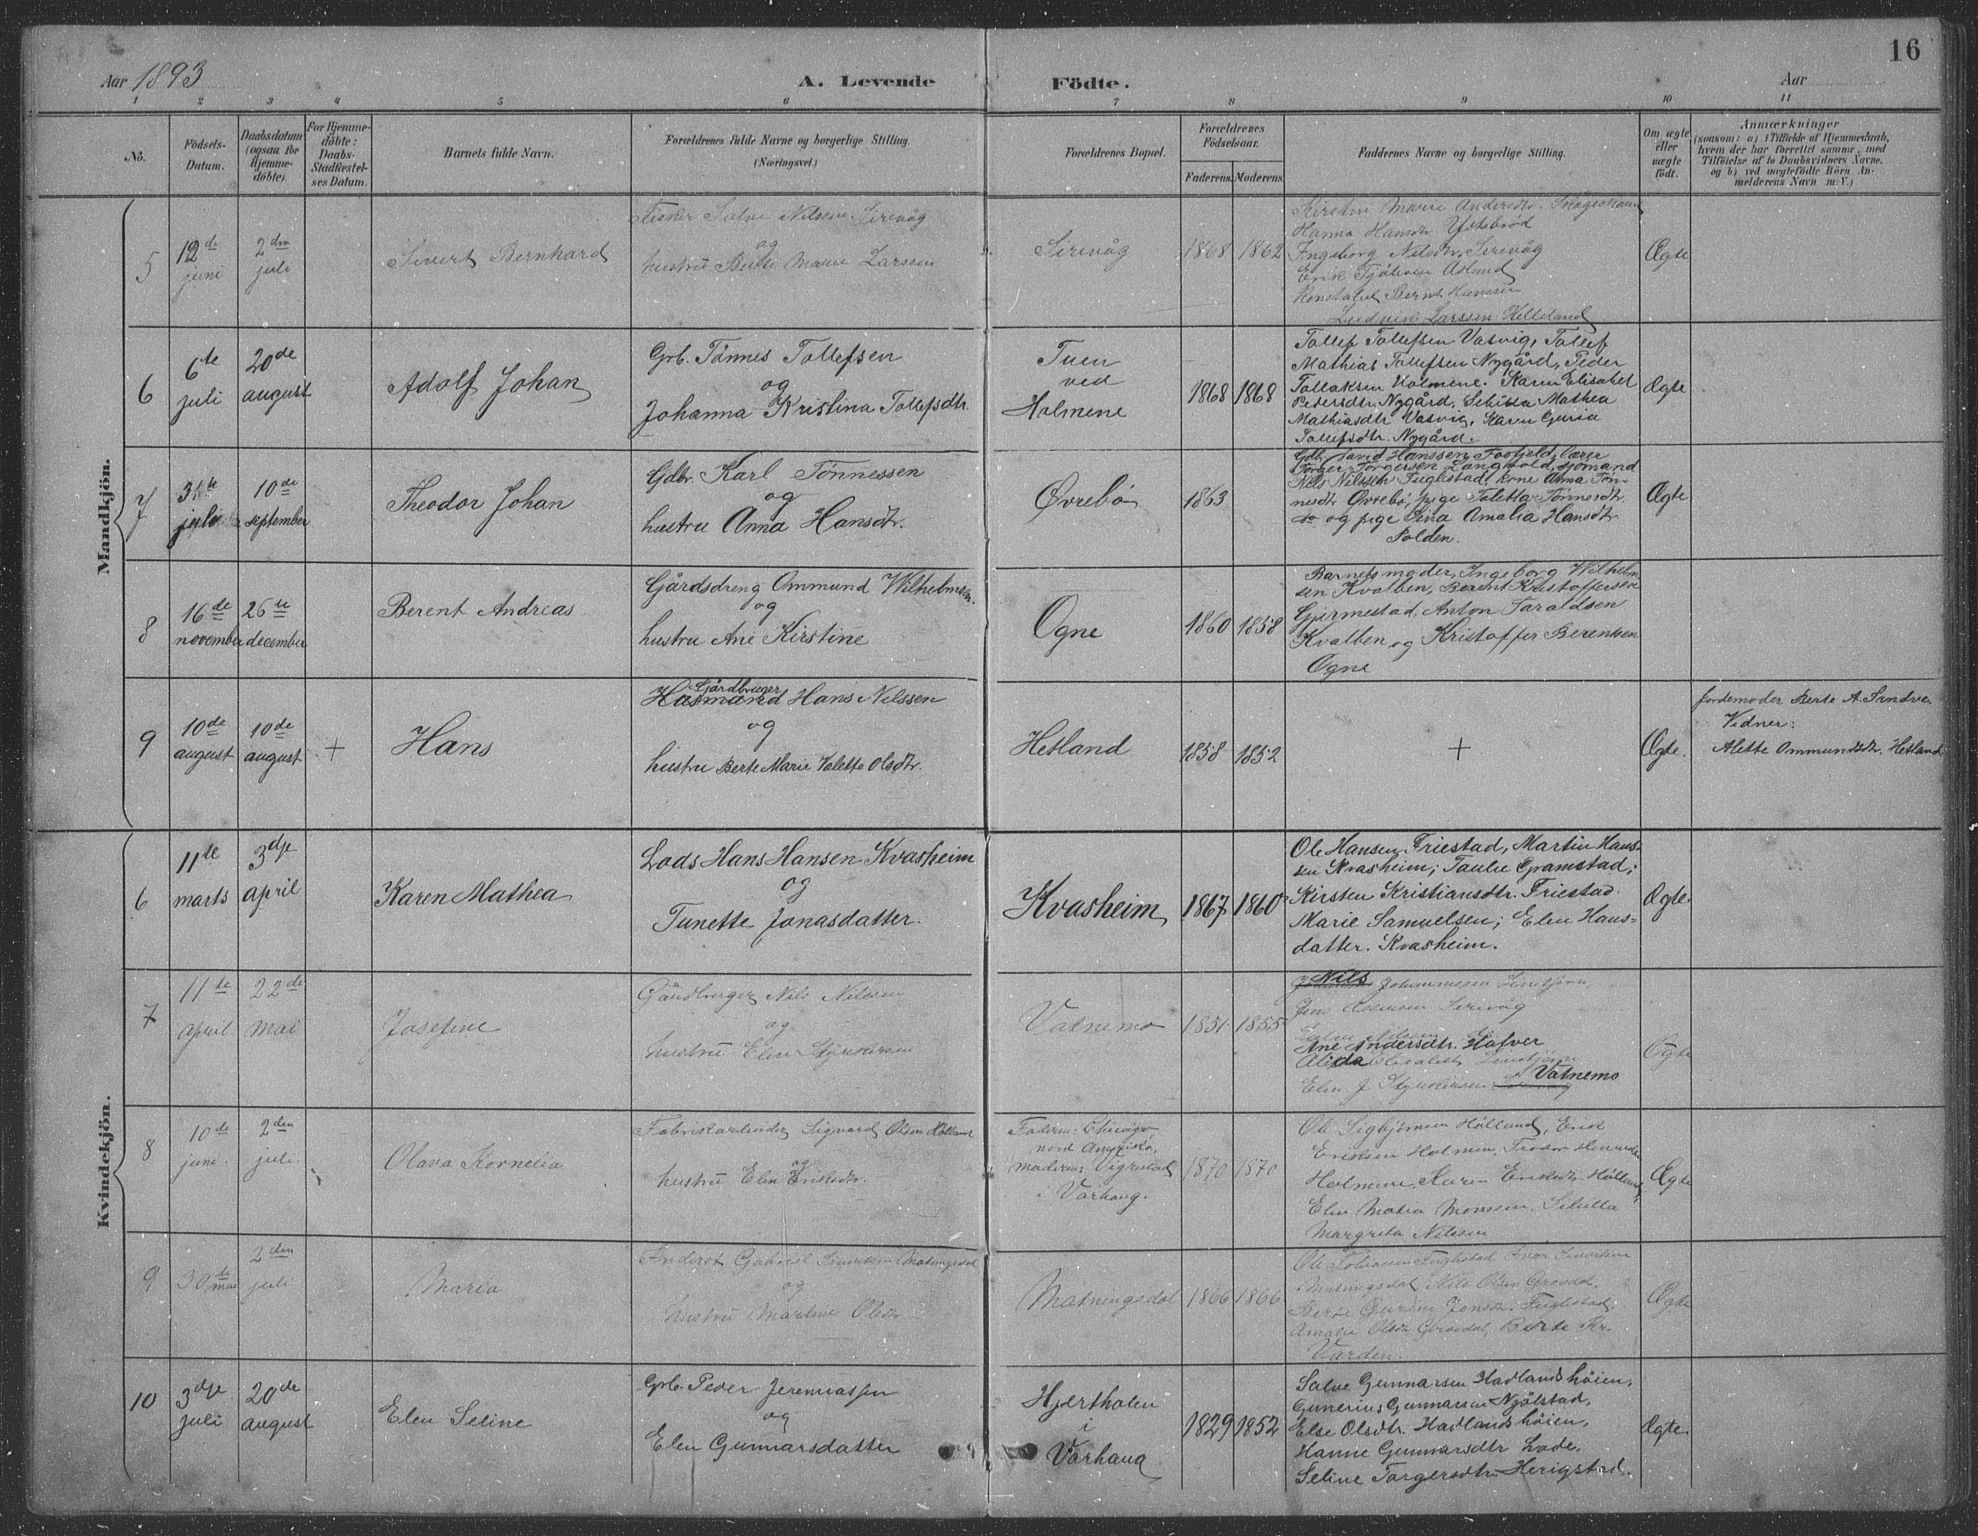 Aar 1893
A. Levende Födte.
Aar
16
1 2 3 4 5 6 7 8 9 10 11
No.
Födsels-
Datum.
Daabsdatum
(ogsaa for
Hjemme-
døbte).
For Hjemme-
døbte:
Daabs-
Stadfæstel-
ses Datum.
Barnets fulde Navn.
Forældrenes fulde Navne og borgerlige Stilling.
(Næringsvei.)
Forældrenes Bopæl.
Forældrenes
Födselsaar.
Faderens. Moderens.
Faddernes Navne og borgerlige Stilling.
Om ægte
eller
uægte
født.
Anmærkninger
(saasom: a) i Tilfælde af Hjemmedaab,
hvem der har forrettet samme, med
Tilföielse af to Daabsvidners Navne,
og b) ved uægtefödte Börn An-
melderens Navn m. V.)
Mandkjön.
5
12de
juni
2den
juli
Sivert Bernhard
Fisker Salve Nilsen Sirevåg
og
hustru Berte Marie Larssen
Sirevåg
1868 1862
Kirstin Marie Andersdtr.
Hanna Hansdtr. Ystebrød
Ingeborg Nilsdtr. Sirevåg
Erik
Bernt Hansen
Ludvik Larssen Helleland
Ægte
6
6te
juli
20de
august
Adolf Johan
Grb. Tönnis Tollefsen
og
Johanna Kristina Tollefsdtr.
Tuen
ved
Holmene
1868 1868
Tollef Tollefsen Vasvig, Tollef
Mathias Tollefsen Nygård, Peder
Tollaksen Holmene. Karen Elisabet
Pedersdtr. Nygård, Sebitta Mathea
Mathiasdtr Vasvig, Karen Guria
Tollefsdtr. Nygård.
Ægte
7
31te
juli
10de
september
Theodor Johan
Gdbr. Karl Tönnessen
og
hustru Anna Hansdtr.
Øvrebö
1863
Gdb. David Hanssen
Torger Torgersen sjomand
Nils Nilssen Fuglestad, kone Anna Tön-
nesdtr Øvrebö, pige Taletta Tönnesdtr
do og pige Sina Amalia Hansdtr
Polden.
Ægte
8
16de
november
26te
december
Berent Andreas
Gårdsdreng Ommund Wilhelmsen.
og
hustru Ane Kirstine
Ogne
1860 1858
Barnets moder, Ingeborg Wilhelm-
sen Kvalben, Berent Kristoffersen
Gjermestad, Anton Taraldsen
Kvalben og Kristoffer Berentsen
Ogne
9
10de
august
10de
august
+
Hans
Gårdbruger
Hans Nilssen
og
hustru Berte Marie Valette Olsdtr.
Hetland
1858 1852
+
Ægte.
Jordemoder Berte A. Sandve.
Vidner:
Alette Ommundsdtr. Hetland
Kvindekjön.
6
11te
marts
3dje
april
Karen Mathea
Lods Hans Hansen Kvasheim
og
Tunette Jonasdatter.
Kvasheim
1867 1860
Ole Hansen Friestad, Martin Hans-
sen Kvasheim; Taulie Gramstad;
Kirsten Kristiansdtr. Friestad.
Marie Samuelsen; Elen Hans-
datter. Kvasheim.
Ægte.
7
11te
april
22de
mai
Josefine
Gårdbruger Nils Nilssen
og
hustru Elen
Vatnemo
1851 1855
Nils Johannessen
Jens Sirevåg
Ane Andersdtr. Hafver
Alida Elisabet
Elen J. Vatnemo
Ægte
8
10de
juni.
2den
juli.
Olava Kornelia
Fabrikarbeider Sigvard Olsen Hölland
og
hustru Elen Eriksdtr.
Faderen: Chicago
nord Amerika,
moderen: Vigrestad
i Varhaug.
1870 1870
Ole Sigbjörnsen Hölland, Erik
Eriksen Holmen,
Holmene, Karen Eriksdtr Hölland,
Elen Maria Monssen, Sibitta
Margreta Nilssen
Ægte
9
30te mai
2den
juli
Maria
Gabriel Sivertsen Matningsdal
og
hustru Martine Olsdtr
Matningsdal
1866 1866
Ole Tobiassen Fuglestad, Ivar Sivertsen
Matningsdal, Nils Olsen Grövdal,
Berte Gurine Jonsdtr. Fuglestad,
Amalie Olsdtr Grövdal, Berte Kr.
Varden.
Ægte
10
3dje
juli
20de
august
Elen Seline
Grb. Peder Jeremiassen
og
Elen Gunnarsdatter
Hjerthalen
i
Varhaug
1829 1852
Salve Gunnarsen Hadlandshöien,
Gunerius Gunnarsen Njölstad,
Else Olsdtr. Hadlandshöien,
Hanne Gunnarsdtr Lode,
Seline Torgersdtr. Herigstad.
Ægte.